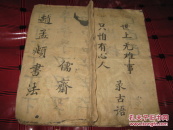 世上无难事
只怕有心人
录古語
儒齋
趙孟頫書法